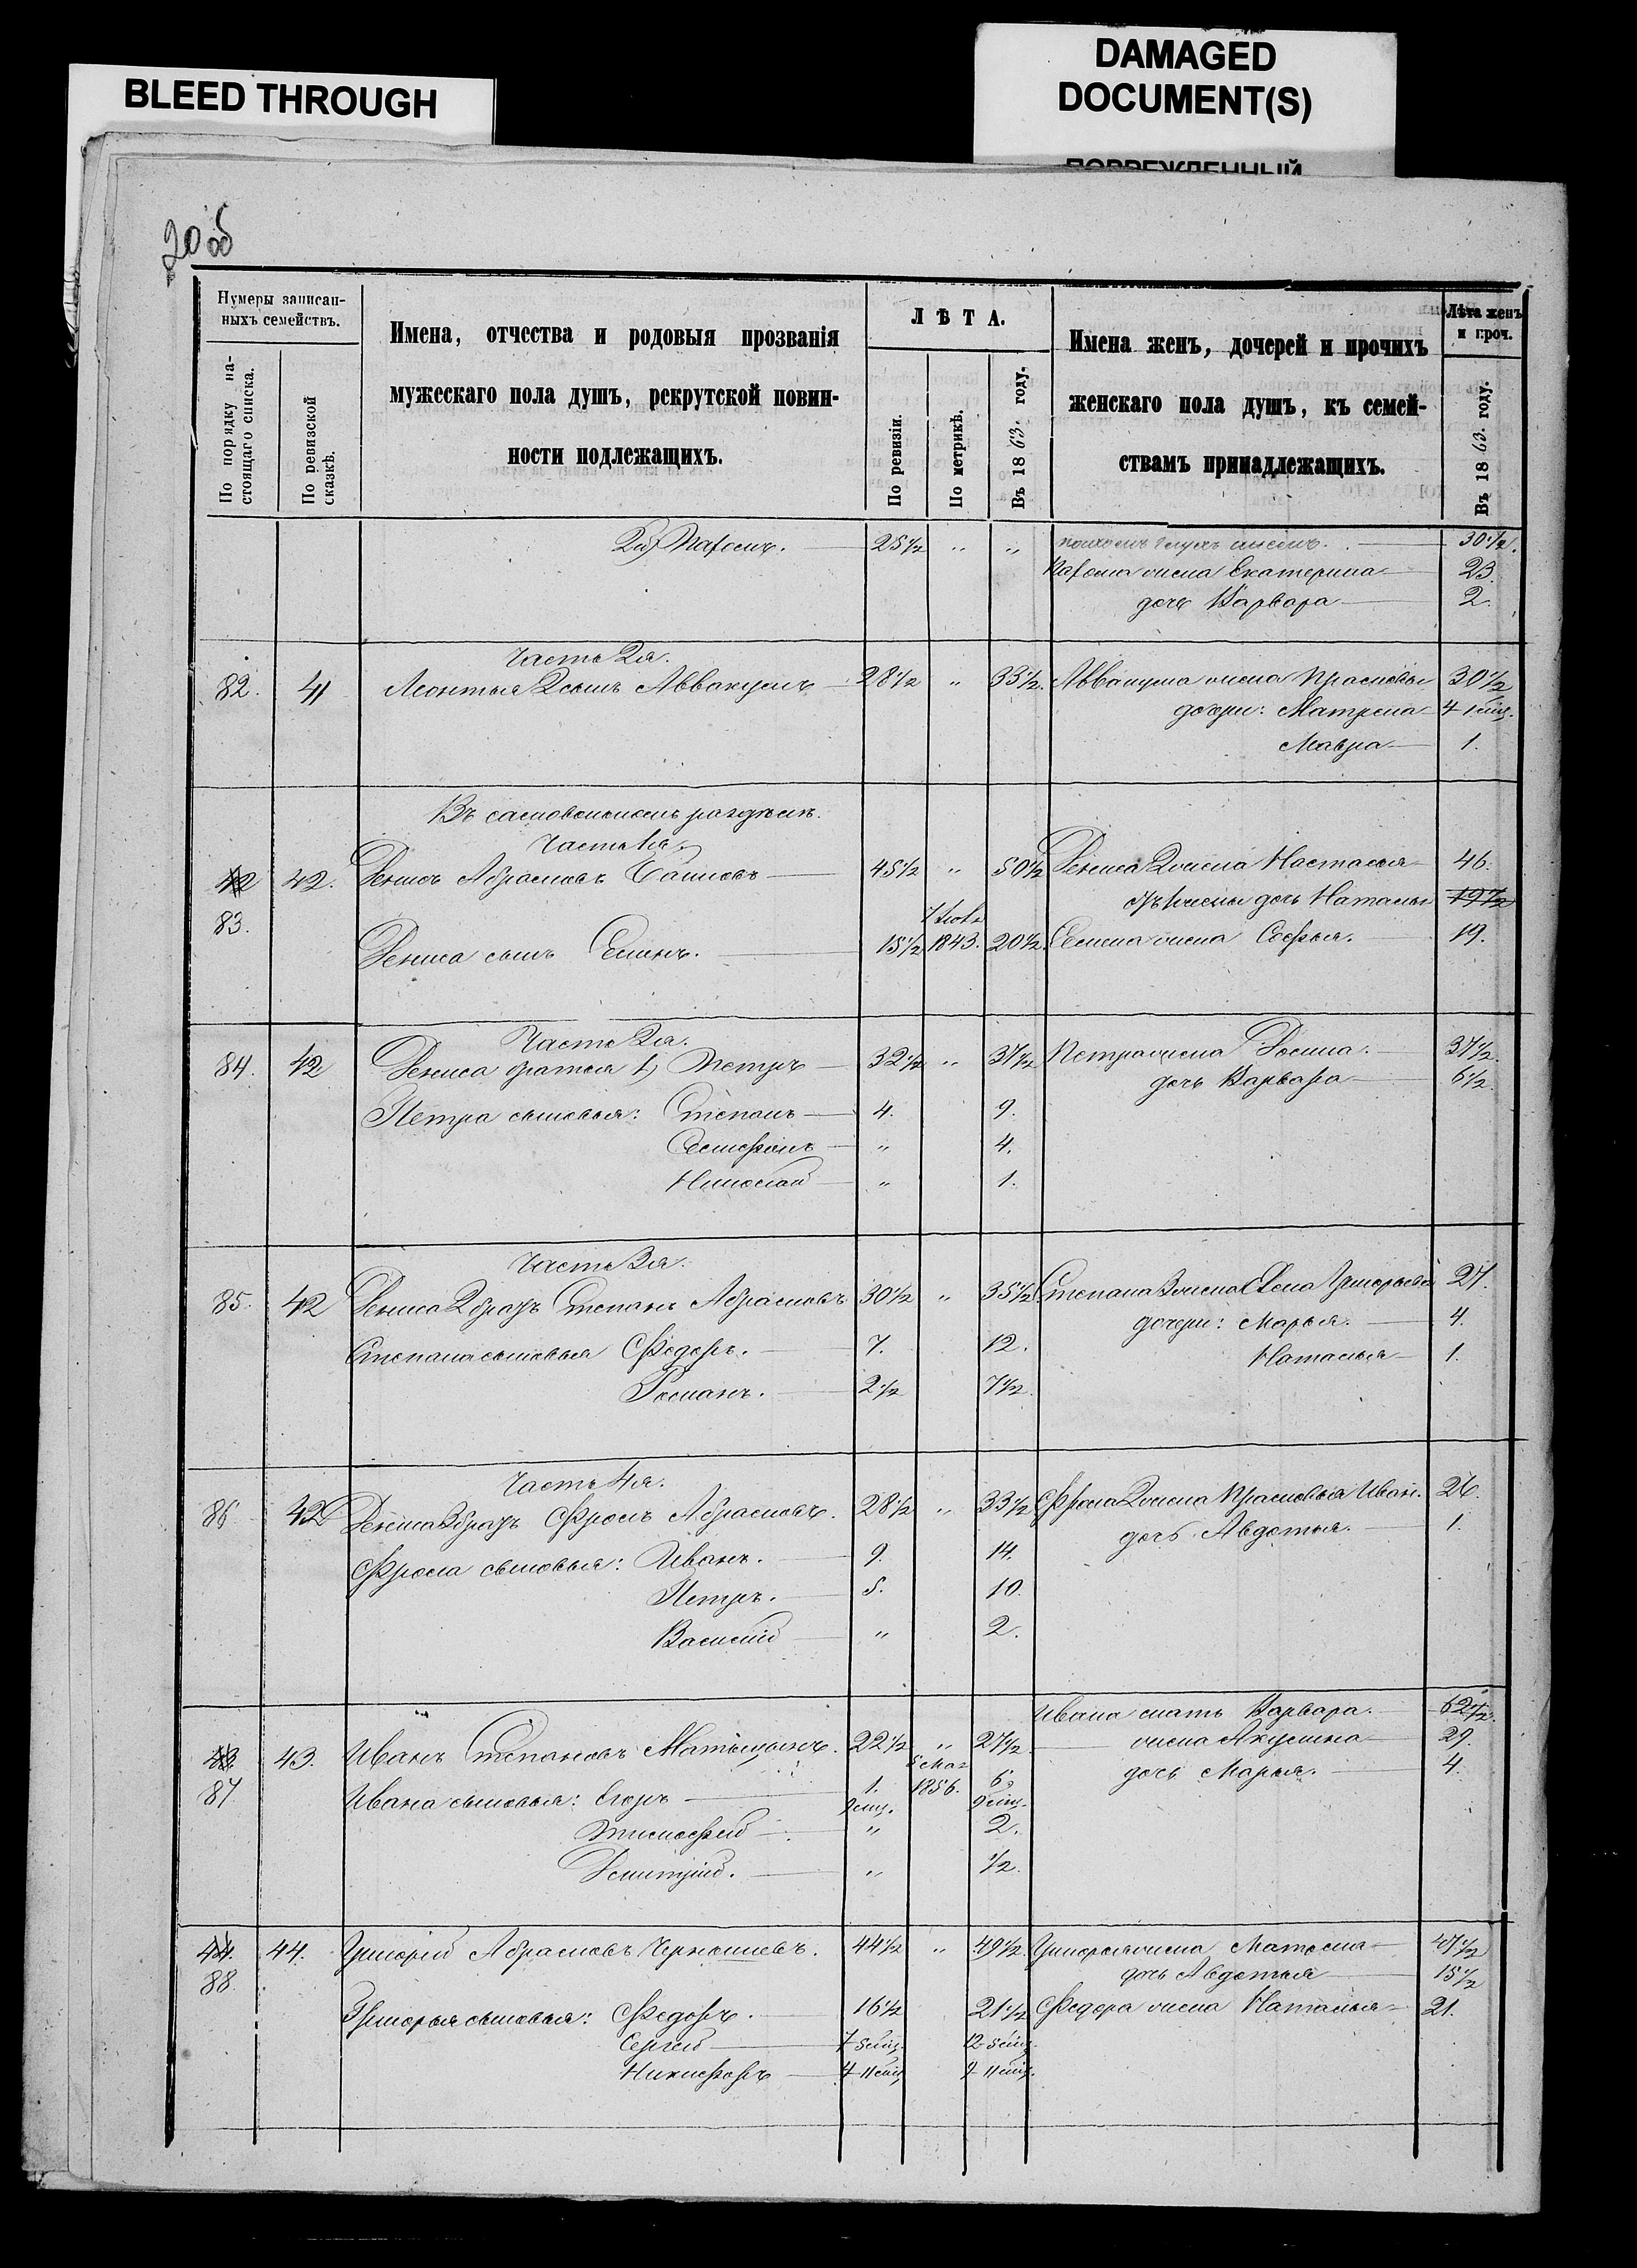 BLEED THROUGH
DAMAGED
DOCUMENT(S)
ПОВРЕЖДЕННЫЙ
20 об
Нумеры записан-
ныхъ семействъ.
По порядку на-
стоящаго списка.
По ревизской
сказкѣ.
Имена, отчества и родовыя прозванія
мужескаго пола душъ, рекрутской повин-
ности подлежащихъ.
ЛѢТА.
По ревизіи.
По метрикѣ.
Въ 1863. году.
Имена женъ, дочерей и прочихъ
женскаго пола душъ, къ семей-
ствамъ принадлежащихъ.
Лѣта женъ
и проч.
Въ 1863. году.
2й) Парѳенъ. 25½ " " 30½.
Парѳена жена Екатерина 23.
дочь Варвара 2.
Часть 2я.
82. 41 Леонтья 2 сынъ Аввакумъ 28½ " 33½. Аввакума жена Прасковья 30½
дочери: Матрена 4 1 мѣц.
Мавра 1.
Въ самовольномъ раздѣлѣ.
Часть 1я.
42 42. Денисъ Абрамовъ 45½ " 50½ Дениса 2 жена Настасья 46.
дочь Наталья 19½
83.
Дениса сынъ Семенъ. 15½ 1843. 20½. Семена жена Софья. 19.
Часть 2я.
84. 42 Дениса братья 1) Петръ 32½ " 37½ Петра жена Домна. 37½.
дочь Варвара 6½
Петра сыновья: Степанъ 4. 9.
" 4.
Николай " 1.
Часть 3я.
85. 42 Дениса 2 братъ Степанъ Абрамовъ 30½ " 35½ Степана 2 жена Григорьева 27.
дочери: Марья. 4.
Степана сыновья Федоръ. 7. 12.
Наталья 1.
Романъ. 2½ 7½.
Часть 4я.
86 42 Дениса 3 братъ Фролъ Абрамовъ. 28½ " 33½ Фрола 2 жена Прасковья Иван. 26
дочь Авдотья. 1.
Фрола сыновья: Иванъ. 9. 14.
Петръ. 5. 10.
Василій " 2.
Ивана мать Варвара. 62½.
43 43. Иванъ Степановъ 22½ " 27½ жена Акулина 29.
87 дочь Марья. 4.
5 Мая
Ивана сыновья: Егоръ 1. 1856. 6.
9 мѣц. 9 мѣц.
Тимофей " 2.
Дмитрій. " ½.
44. 44. Григорій Абрамовъ Чернышевъ. 44½ " 49½. Григорья жена Матрена 47½
88. дочь Авдотья 15½
Григорья сыновья: Федоръ. 16½ 21½ Федора жена Наталья 21.
Сергей 7 5 мѣц. 12 5 мѣц.
Никифоръ 4 11 мѣц 9 11 мѣц.